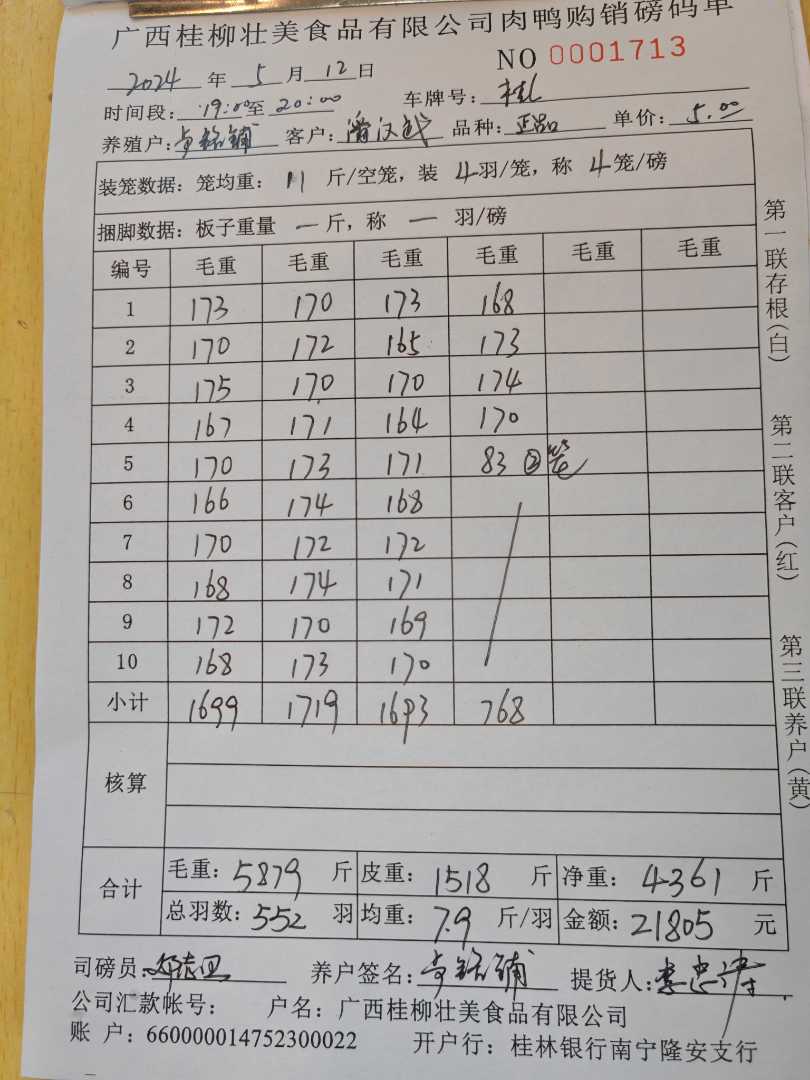 广西桂柳壮美食品有限公司肉鸭购销磅码单
NO 0001713
2024 年 5 月 12 日
时间段: 19:00 至 20:00 车牌号: 桂
养殖户: 铭铺 客户: 潘汉 品种: 正品 单价: 5.00
装笼数据: 笼均重: 11 斤/空笼, 装 4 羽/笼, 称 4 笼/磅
捆脚数据: 板子重量 一 斤, 称 一 羽/磅
编号 毛重 毛重 毛重 毛重 毛重 毛重
1 173 170 173 168
2 170 172 165 173
3 175 170 170 174
4 167 171 164 170
5 170 173 171 83 ②笼
6 166 174 168
7 170 172 172
8 168 174 171
9 172 170 169
10 168 173 170
小计 1699 1719 1693 768
核算
合计 毛重: 5879 斤 皮重: 1518 斤 净重: 4361 斤
总羽数: 552 羽 均重: 7.9 斤/羽 金额: 21805 元
司磅员: 养户签名: 铭铺 提货人: 李忠
公司汇款帐号: 户名: 广西桂柳壮美食品有限公司
账 户: 660000014752300022 开户行: 桂林银行南宁隆安支行
第一联存根(白)
第二联客户(红)
第三联养户(黄)